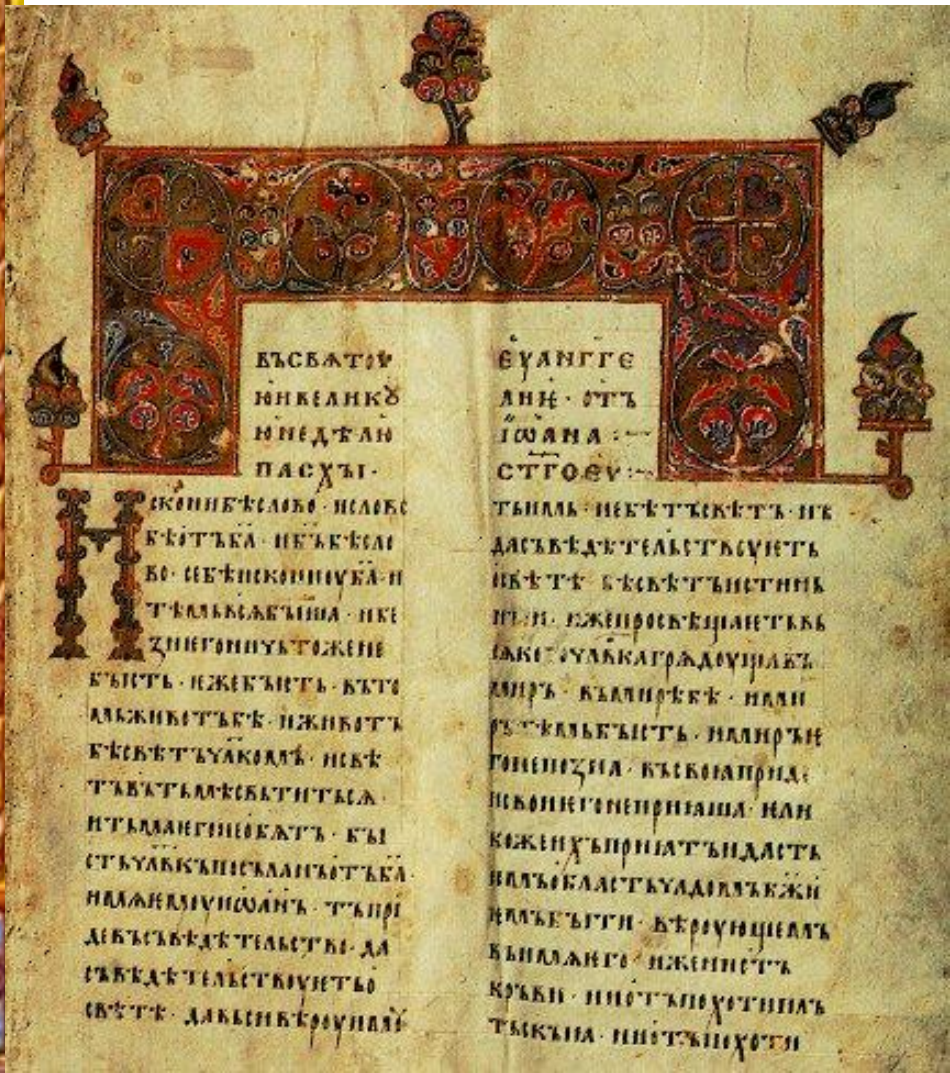 ВЪСВѦТОУ
ЮИВЕЛИКꙊ
ЮНЕДѢЛЮ
ПАСХЪІ·
ИСКОНИБѢСЛОВО·ИСЛОВО
БѢОТЪБ҃А·ИБ҃ЪБѢСЛО
ВО·СЕБѢИСКОНИОУБ҃А·И
ТѢМЬВСѦБЪІША·ИБЕ
ЗНѤГОНИЧЬТОЖЕНЕ
БЪІСТЬ·ѤЖЕБЪІСТЬ·ВЪТО
МЬЖИВОТЪБѢ·ИЖИВОТЪ
БѢСВѢТЪЧЛ҃КОМЪ·ИСВѢ
ТЪВЪТЬМѢСВЬТИТЬСѦ·
ИТЬМАѤГОНЕОБѦТЪ·БЪІ
СТЬЧЛ҃ВКЪПОСЪЛАНЪОТЪБ҃А·
ИМѦѤМОУИѠАНЪ·ТЪПРИ
ДЕВЪСЪВѢДѢТЕЛЬСТВО·ДА
СЪВѢДѢТЕЛЬСТВОУѤТЬО
СВѢТѢ·ДАВЬСИВѢРОУИМОУ
ЕУАНГГЕ
ЛИѤ·ОТЪ
ІѠАНА:~
СТ҃ГОЕУ:~
ТЬИМЬ·НЕБѢТЪСВѢТЪ·НЪ
ДАСЪВѢДѢТЕЛЬСТВОУѤТЬ
ОСВѢТѢ·БѢСВѢТЪИСТИНЬ
НЪИ·ИЖЕПРОСВѢЩАѤТЬВЬ
СѦКОГОЧЛ҃ВКАГРѦДОУЩАВЪ
МИРЪ·ВЪМИРѢБѢ·ИМИ
РЪТѢМЬБЪІСТЬ·ИМИРЪѤ
ГОНЕПОЗНА·ВЪСВОꙖПРИДЕ
ИСВОИѤГОНЕПРИꙖША·ѤЛИ
КОЖЕИХЪПРИꙖТЪИДАСТЬ
ИМЪОБЛАСТЬЧАДОМЪБ҃ЖИ
ѤМЪБЪІТИ·ВѢРОУЮЩЕМЪ
ВЪИМѦѤГО·ИЖЕНИОТЪ
КРЪВИ·НИОТЪПОХОТИПЛЪ
ТЬСКЪІꙖ·НИОТЪПОХОТИ